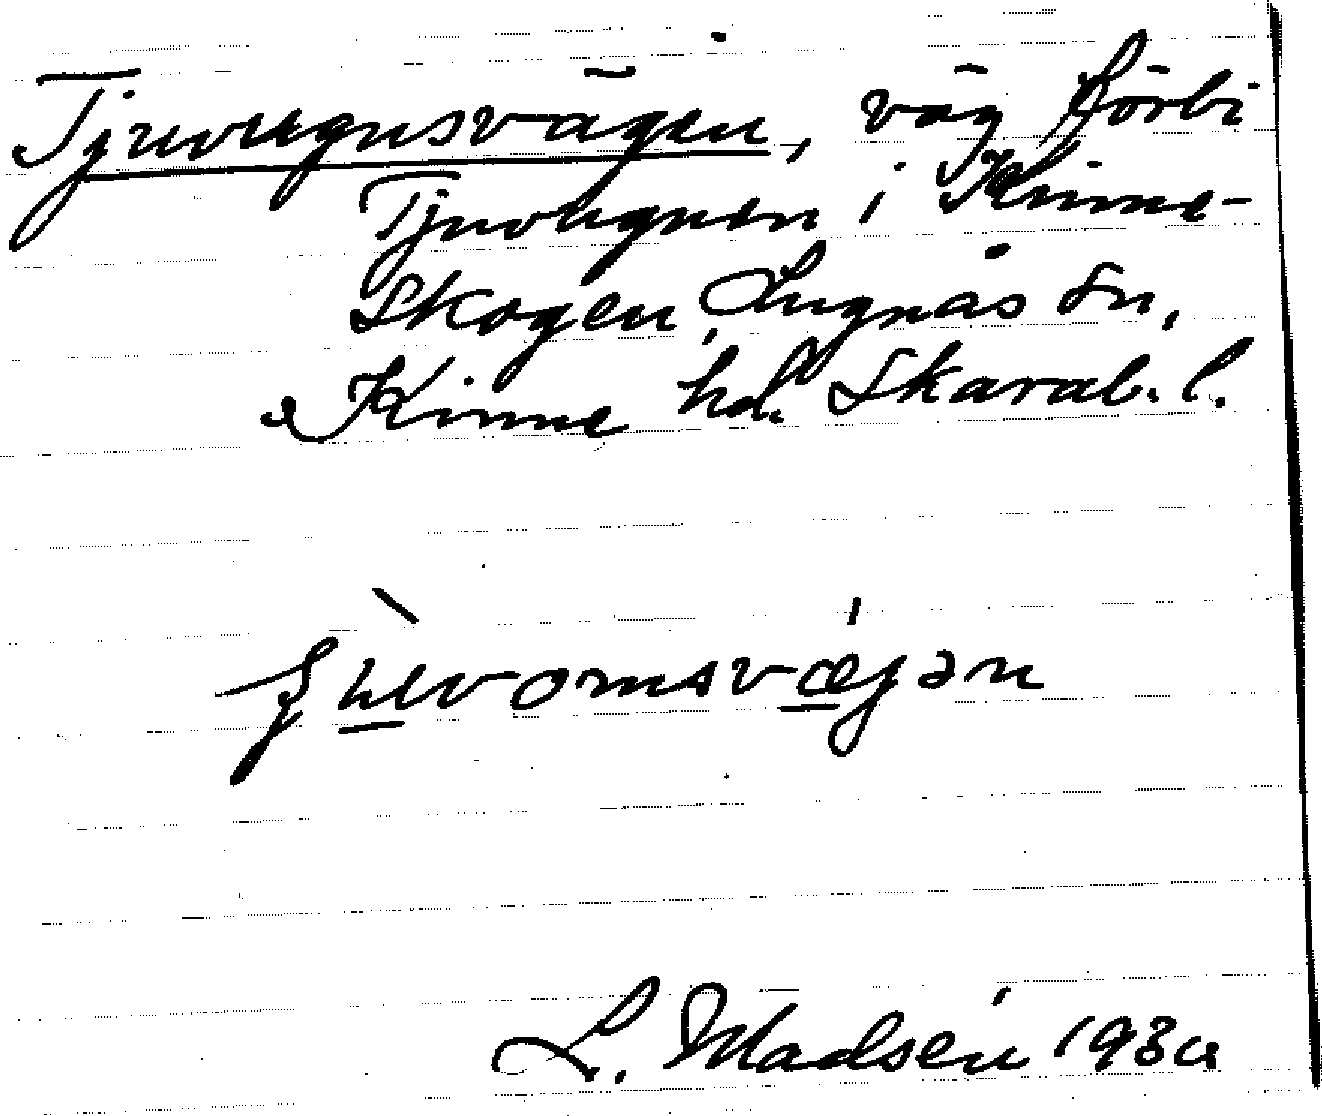 Tjuvugnsvägen, väg förbi
Tjuvugnen i Kinne-
Skogen, Lugnås sn,
Kinne hd. Skarab. l.
L. Madsén 1934